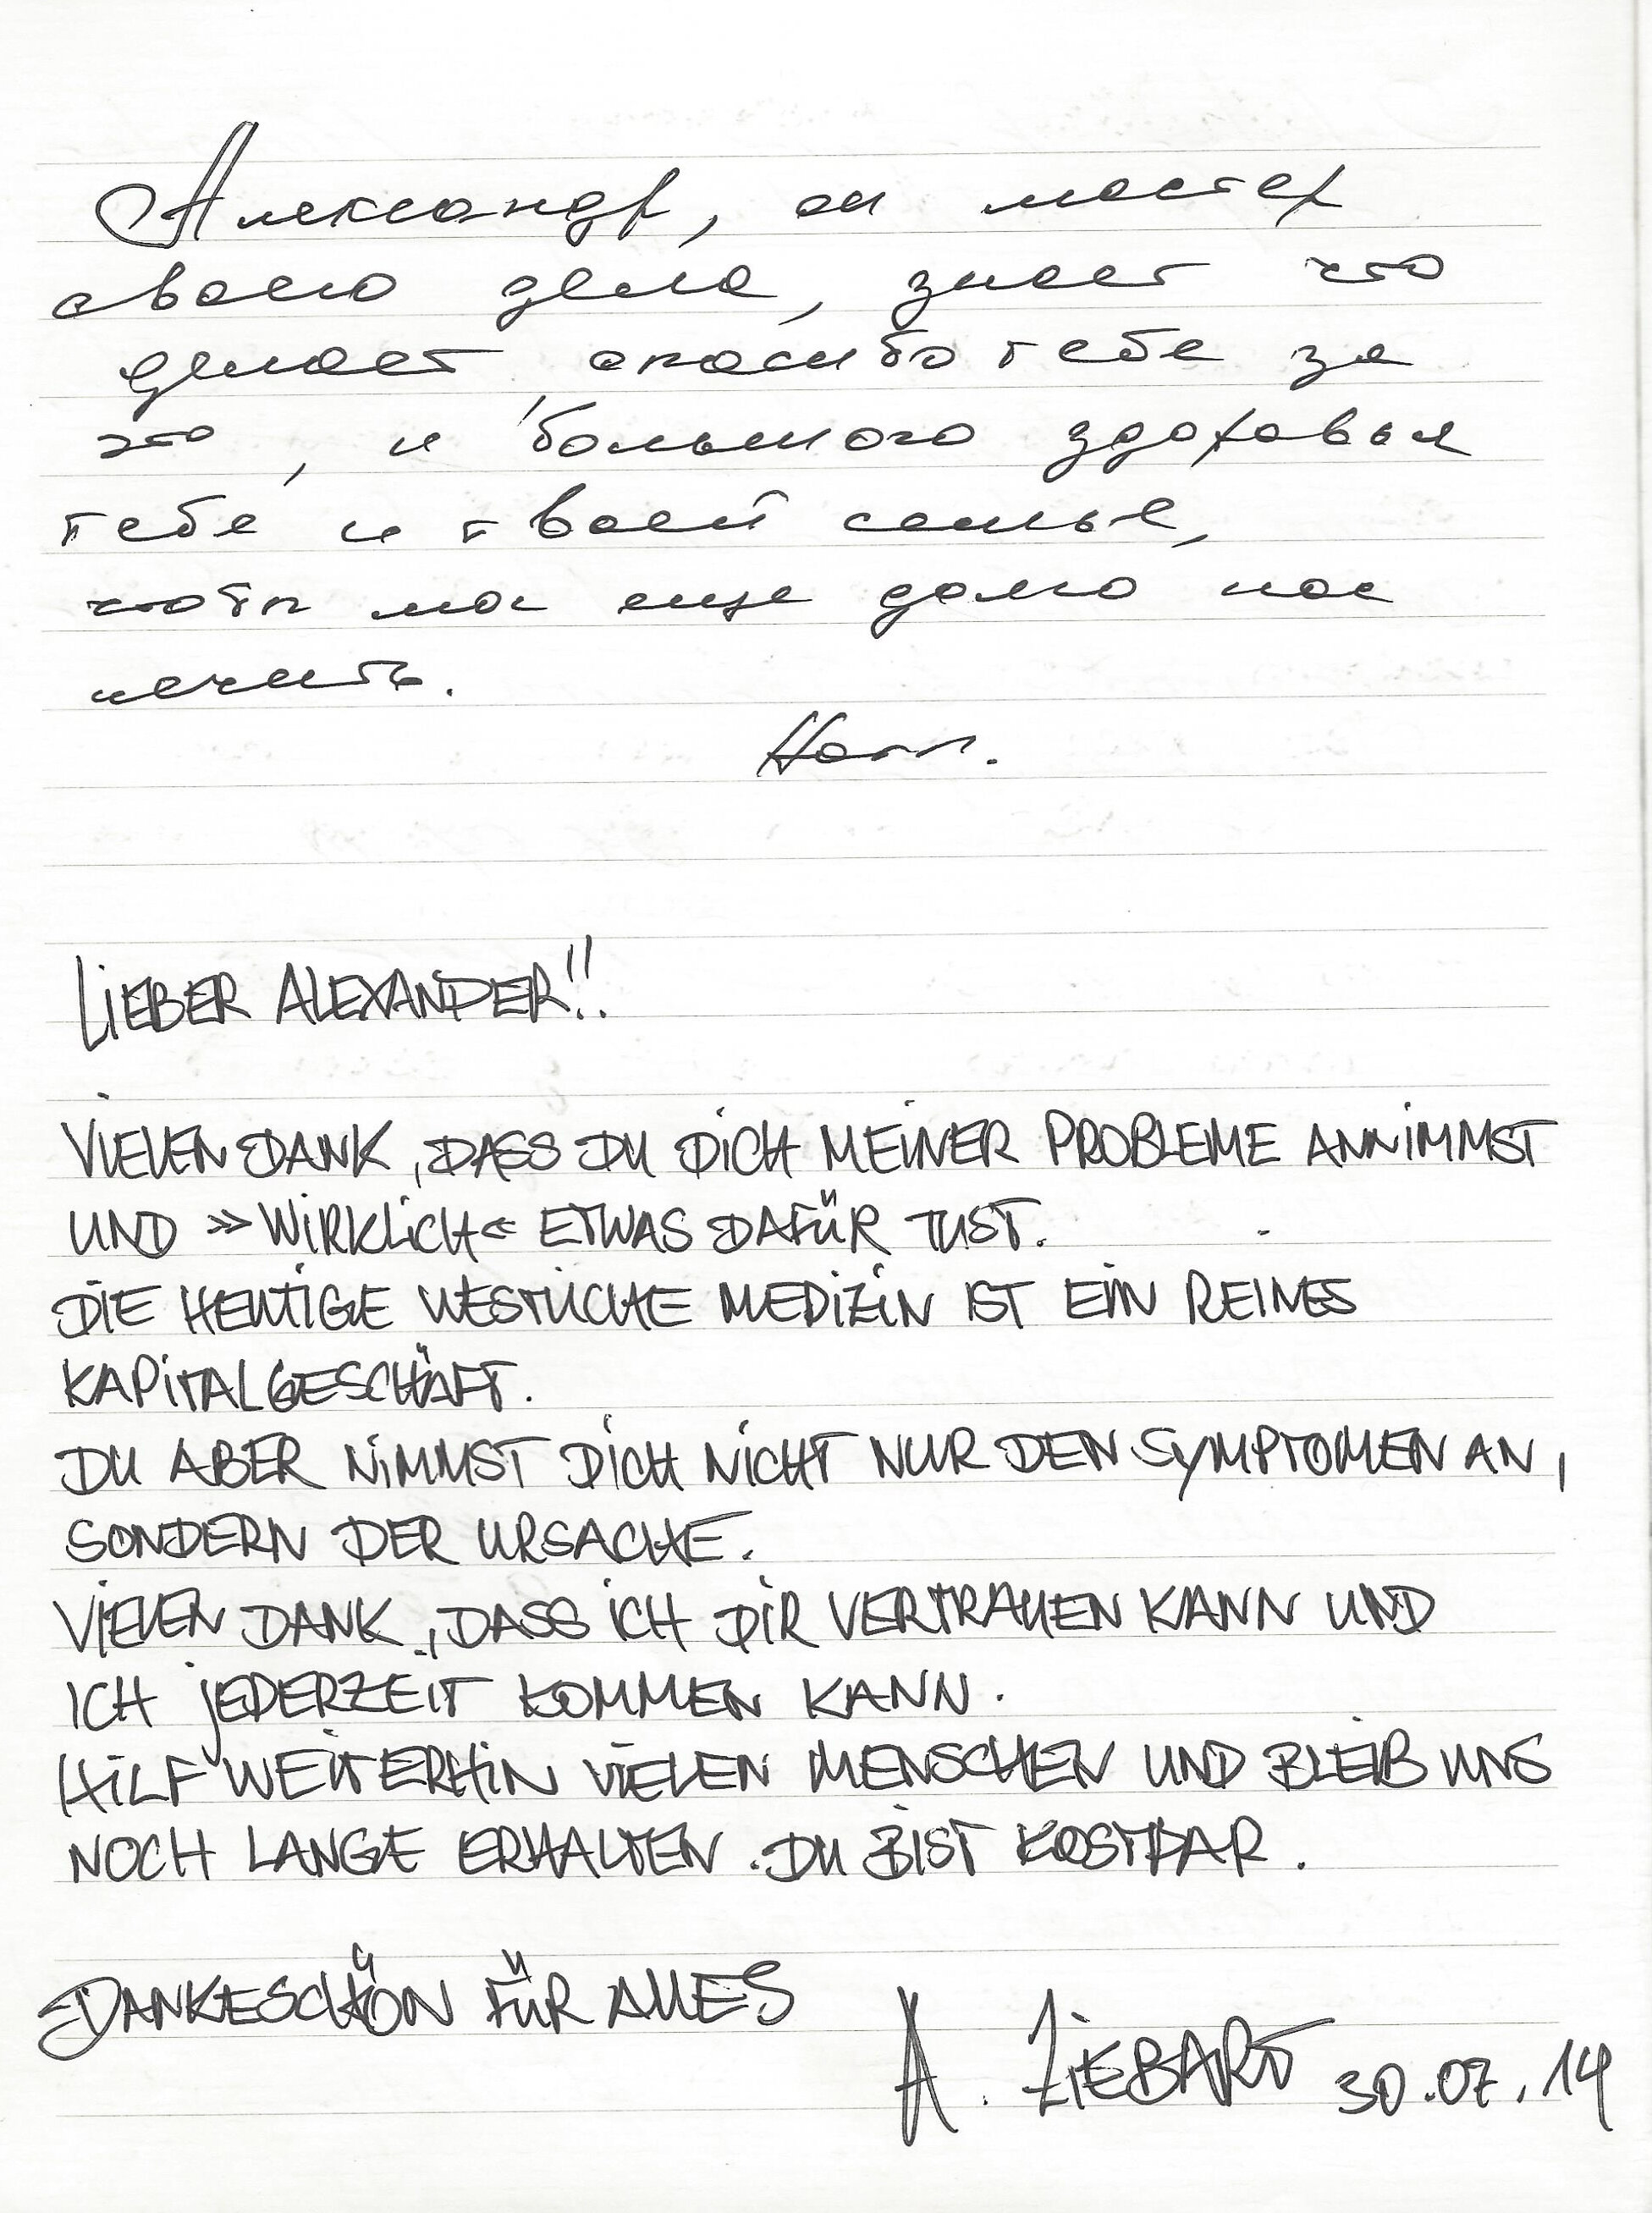 Александр, он мастер
своего дела, знает что
делает, спасибо тебе за
это, и большого здоровья
тебе и твоей семье,
чтобы мог еще долго нас
лечить.
LIEBER ALEXANDER!!
VIELEN DANK, DASS DU DICH MEINER PROBLEME ANNIMMST
UND »WIRKLICH« ETWAS DAFÜR TUST.
DIE HEUTIGE WESTLICHE MEDIZIN IST EIN REINES
KAPITALGESCHÄFT.
DU ABER NIMMST DICH NICHT NUR DEN SYMPTOMEN AN,
SONDERN DER URSACHE.
VIELEN DANK, DASS ICH DIR VERTRAUEN KANN UND
ICH JEDERZEIT KOMMEN KANN.
HILF WEITERHIN VIELEN MENSCHEN UND BLEIB UNS
NOCH LANGE ERHALTEN. DU BIST KOSTBAR.
DANKESCHÖN FÜR ALLES
A. ZIEBART 30.07.14